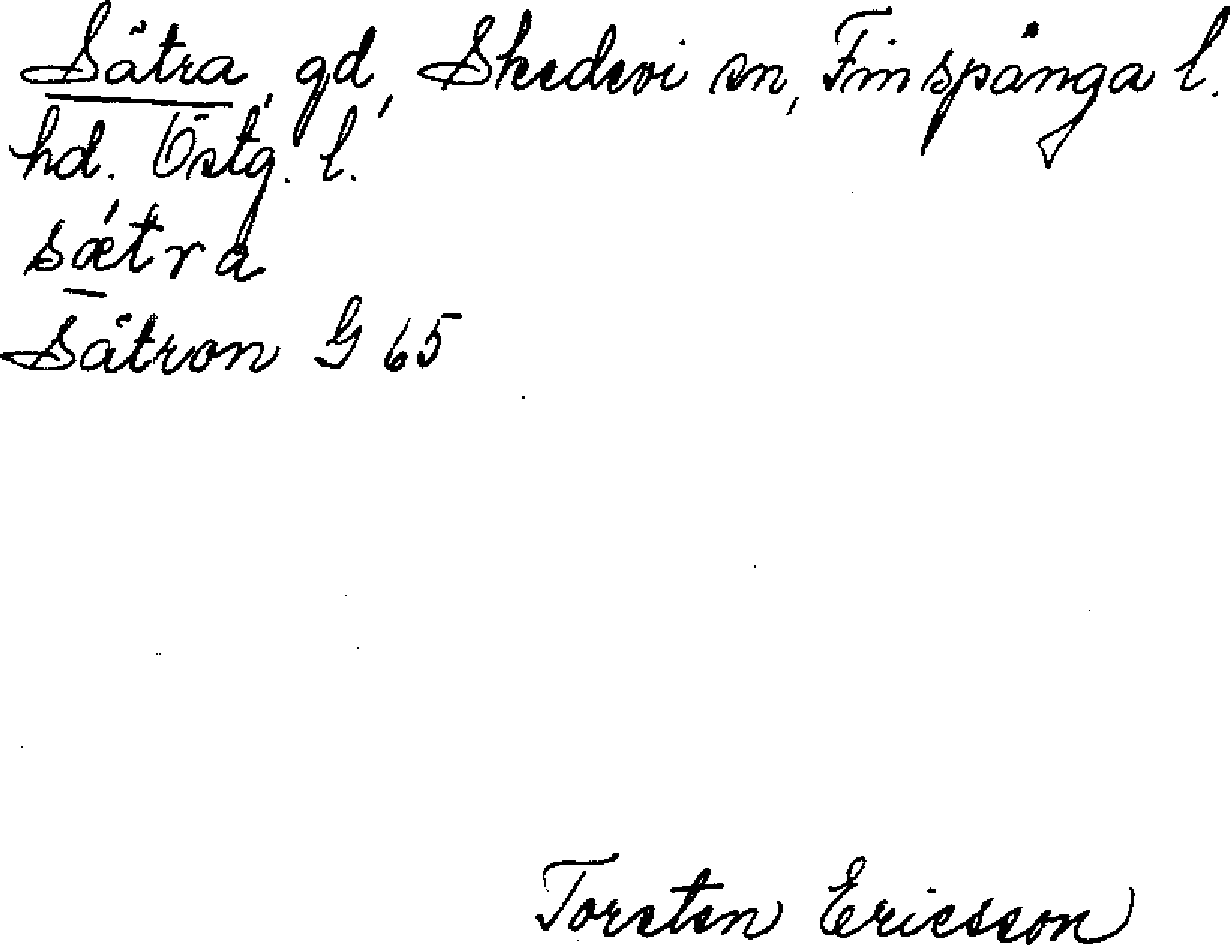 Sätra, gd, Skedevi sn, Finspånga l.
hd. Östg. l.
sǽtra
Sätron G 65
Torsten Ericsson